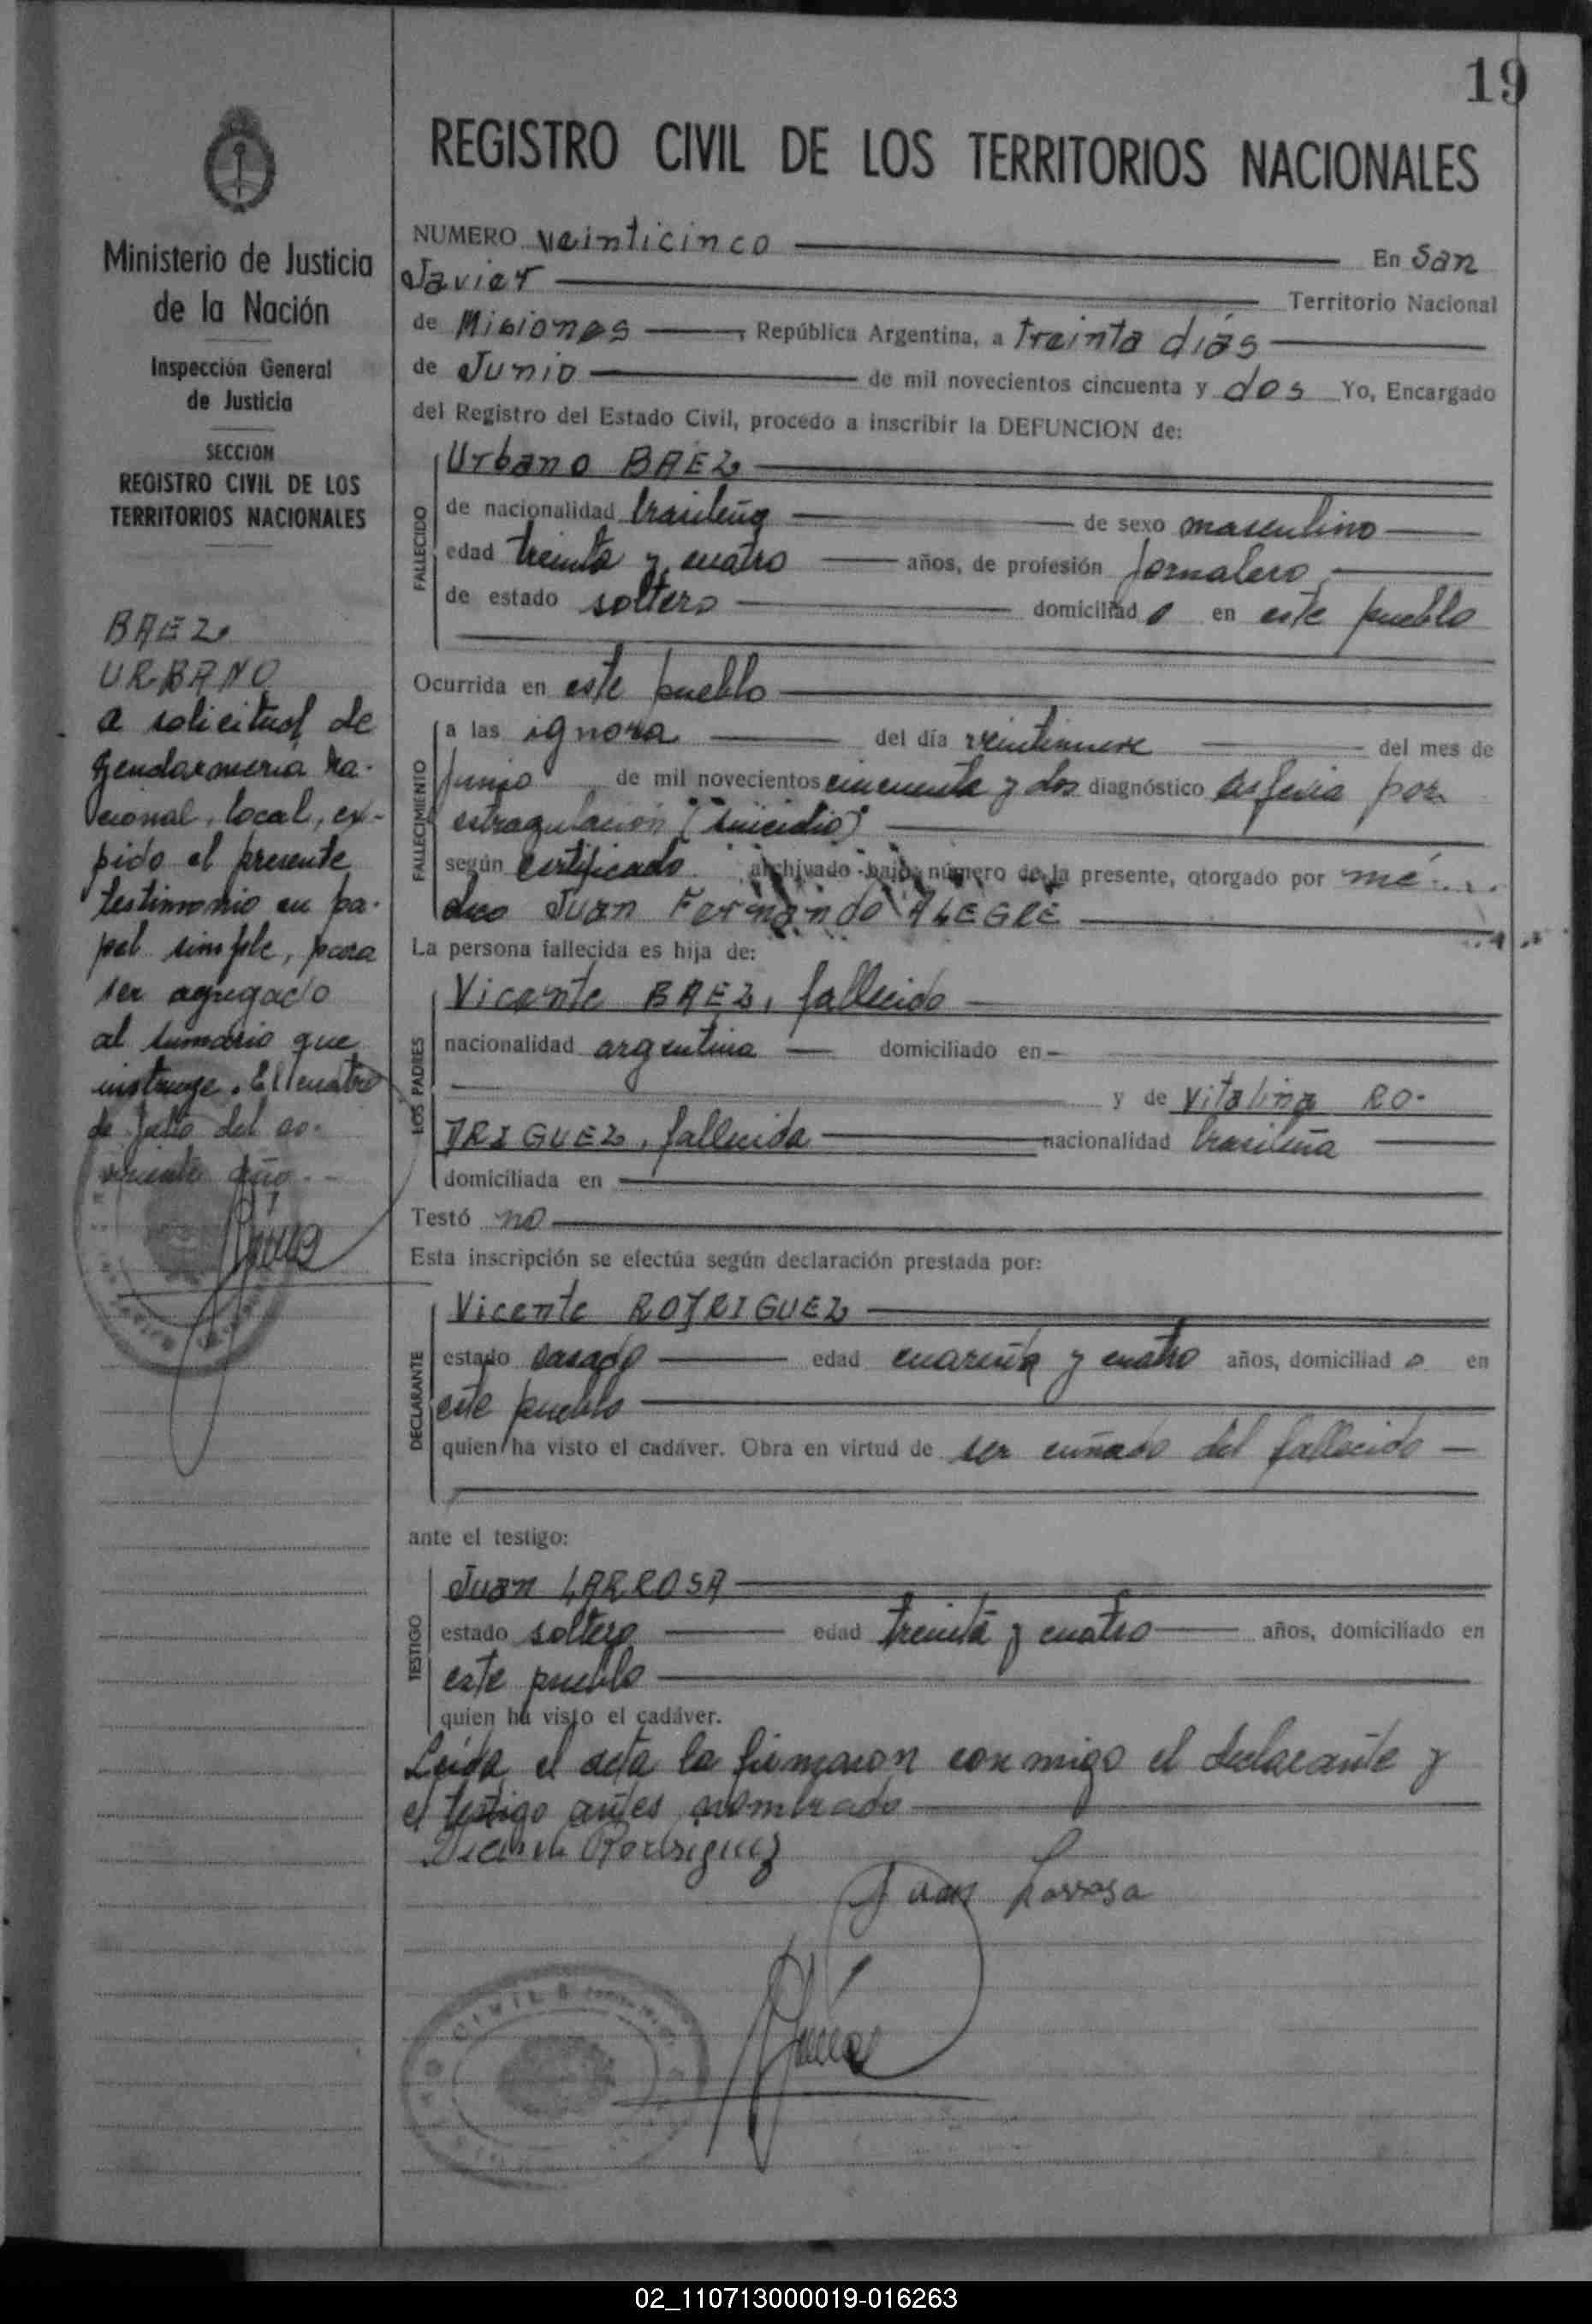 19
REGISTRO CIVIL DE LOS TERRITORIOS NACIONALES
Ministerio de Justicia
de la Nación
Inspección General
de Justicia
SECCION
REGISTRO CIVIL DE LOS
TERRITORIOS NACIONALES
BAEZ
URBANO
a solicitud de
Gendarmeria Na-
cional, local, ex-
pido el presente
testimonio en pa-
pel simple, para
ser agregado
al sumario que
instruye. El cuatro
de Julio del co-
rriente año.-
NUMERO veinticinco En San
Javier Territorio Nacional
de Misiones, República Argentina, a treinta días
de Junio de mil novecientos cincuenta y dos Yo, Encargado
del Registro del Estado Civil, procedo a inscribir la DEFUNCION de:
FALLECIDO
Urbano BAEZ
de nacionalidad brasileña de sexo masculino
edad treinta y cuatro años, de profesión Jornalero
de estado soltero domiciliado en este pueblo
Ocurrida en este pueblo
FALLECIMIENTO
a las ignora del día veintinueve del mes de
Junio de mil novecientos cincuenta y dos diagnóstico asfixia por
estragulación (suicidio)
según certificado archivado bajo número de la presente, otorgado por mé-
dico Juan Fernando ALEGRE
La persona fallecida es hija de:
LOS PADRES
Vicente BAEZ, fallecido
nacionalidad argentina domiciliado en
y de Vitalina RO-
DRIGUEZ, fallecida nacionalidad brasileña
domiciliada en
Testó no
Esta inscripción se efectúa según declaración prestada por:
DECLARANTE
Vicente RODRIGUEZ
estado casado edad cuarenta y cuatro años, domiciliado en
este pueblo
quien ha visto el cadáver. Obra en virtud de ser cuñado del fallecido
ante el testigo:
TESTIGO
Juan LARROSA
estado soltero edad treinta y cuatro años, domiciliado en
este pueblo
quien ha visto el cadáver.
Leída el acta la firmaron conmigo el declarante y
el testigo antes nombrado
Vicente Rodriguez
Juan Larrosa
02_110713000019-016263